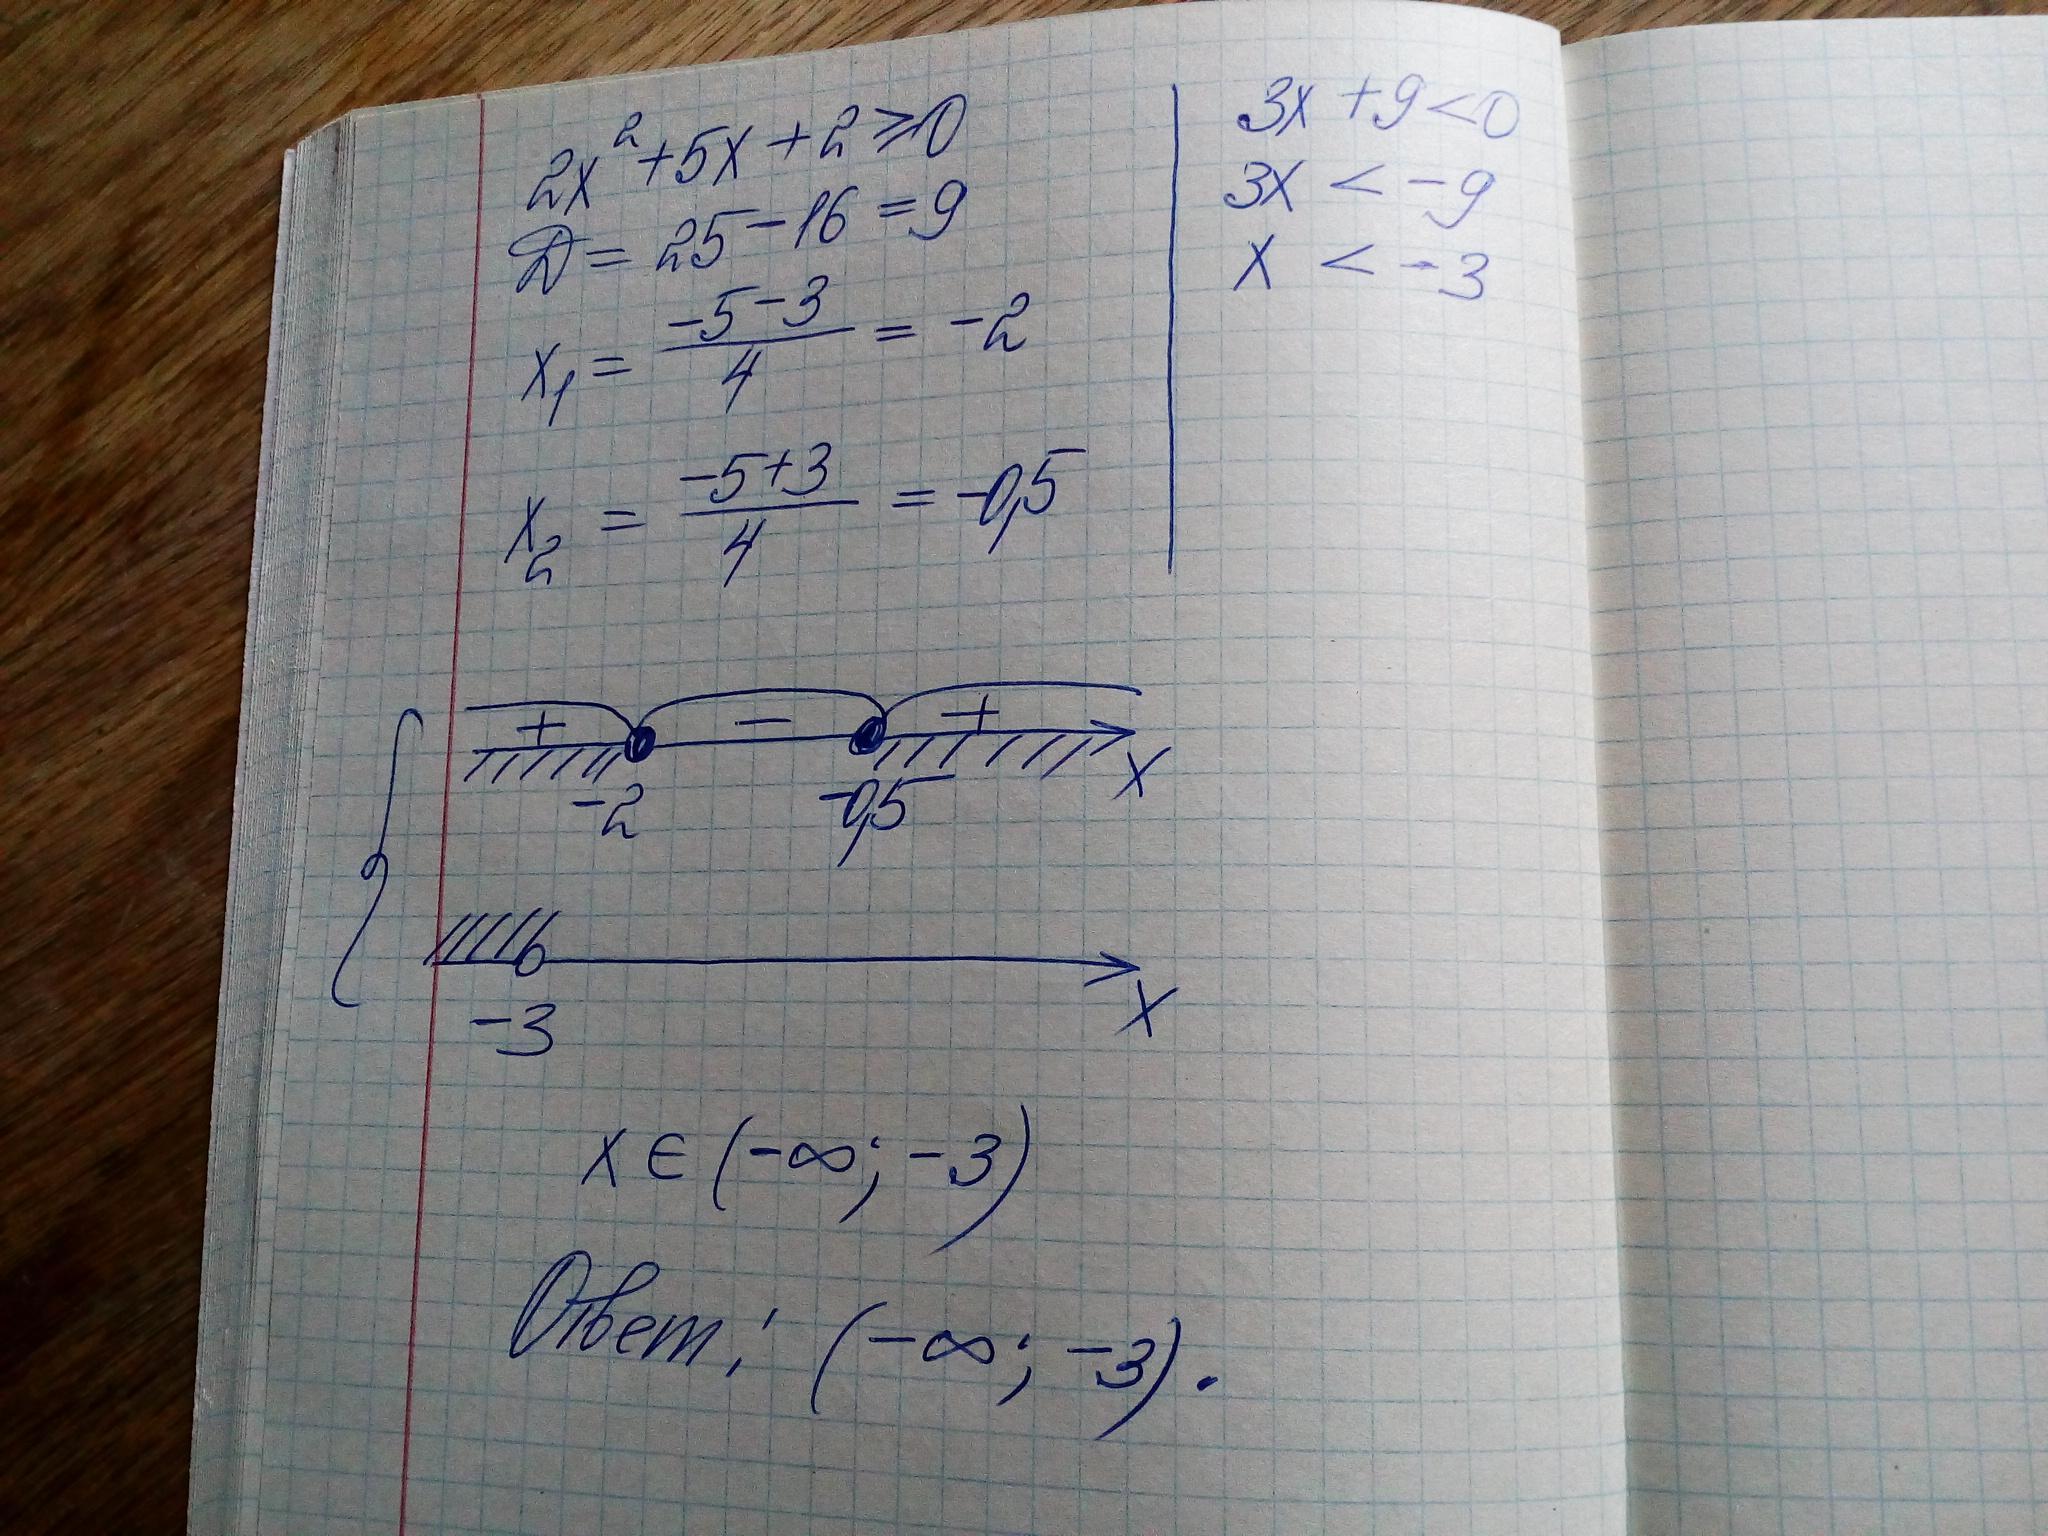 2x² + 5x + 2 ≥ 0
D = 25 - 16 = 9
x₁ = (-5-3)/4 = -2
x₂ = (-5+3)/4 = -0,5
3x + 9 < 0
3x < -9
x < -3
+ - +
-2 -0,5 x
-3 x
x ∈ (-∞; -3)
Ответ: (-∞; -3).